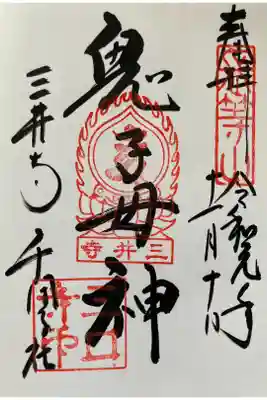 奉拝
令和元年
十一月十日
鬼子母神
三井寺
三井寺 千団子社